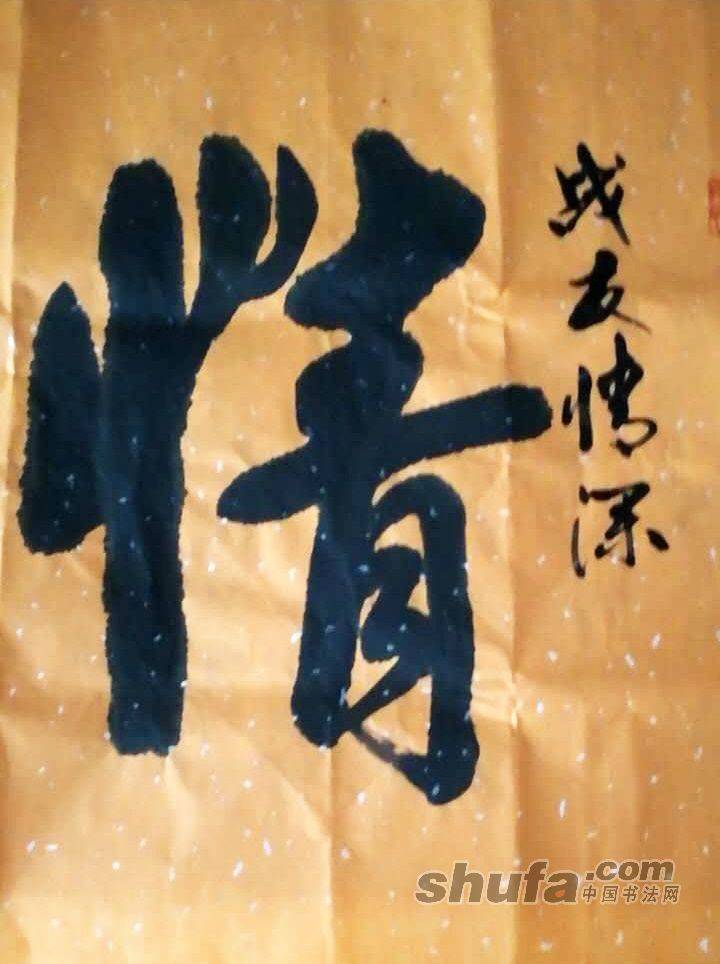 战友情深
情
shufa.com
中国书法网